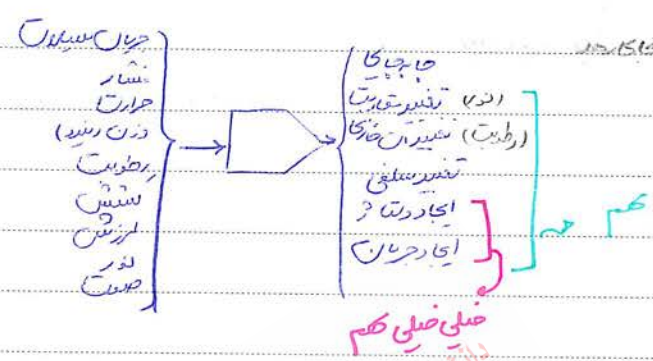 جریان سیالات
فشار
حرارت
وزن (نیرو)
رطوبت
کشش
لرزش
نور
صوت
جابجایی
تغییر مقاومت (نور)
تغییرات خازنی (رطوبت)
تغییر سلفی
ایجاد ولتاژ
ایجاد جریان
مهم
خیلی خیلی مهم